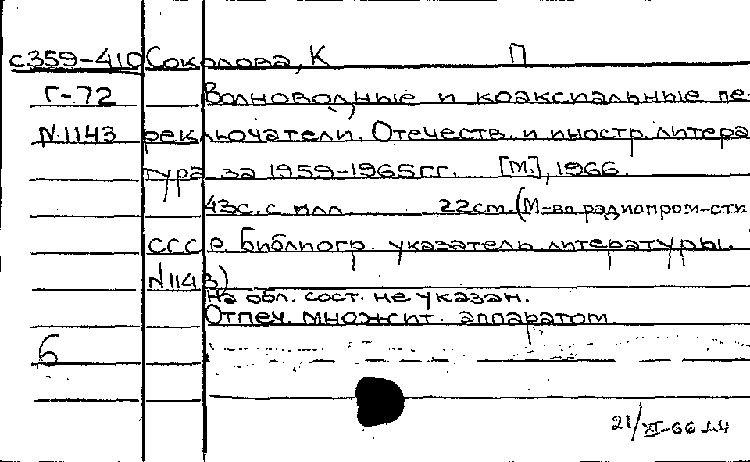 с359-410 Соколова, К П
Г-72 Волноводные и коаксиальные пе-
N.1143 реключатели. Отечеств. и иностр. литера
тура за 1959-1965гг. [М.], 1966.
43с. с илл. 22см. (М-во радиопром-сти
СССР. Библиогр. указатель литературы.
N1143)
На обл. сост. не указан.
Отпеч. множит. аппаратом.
6
21/XI-66